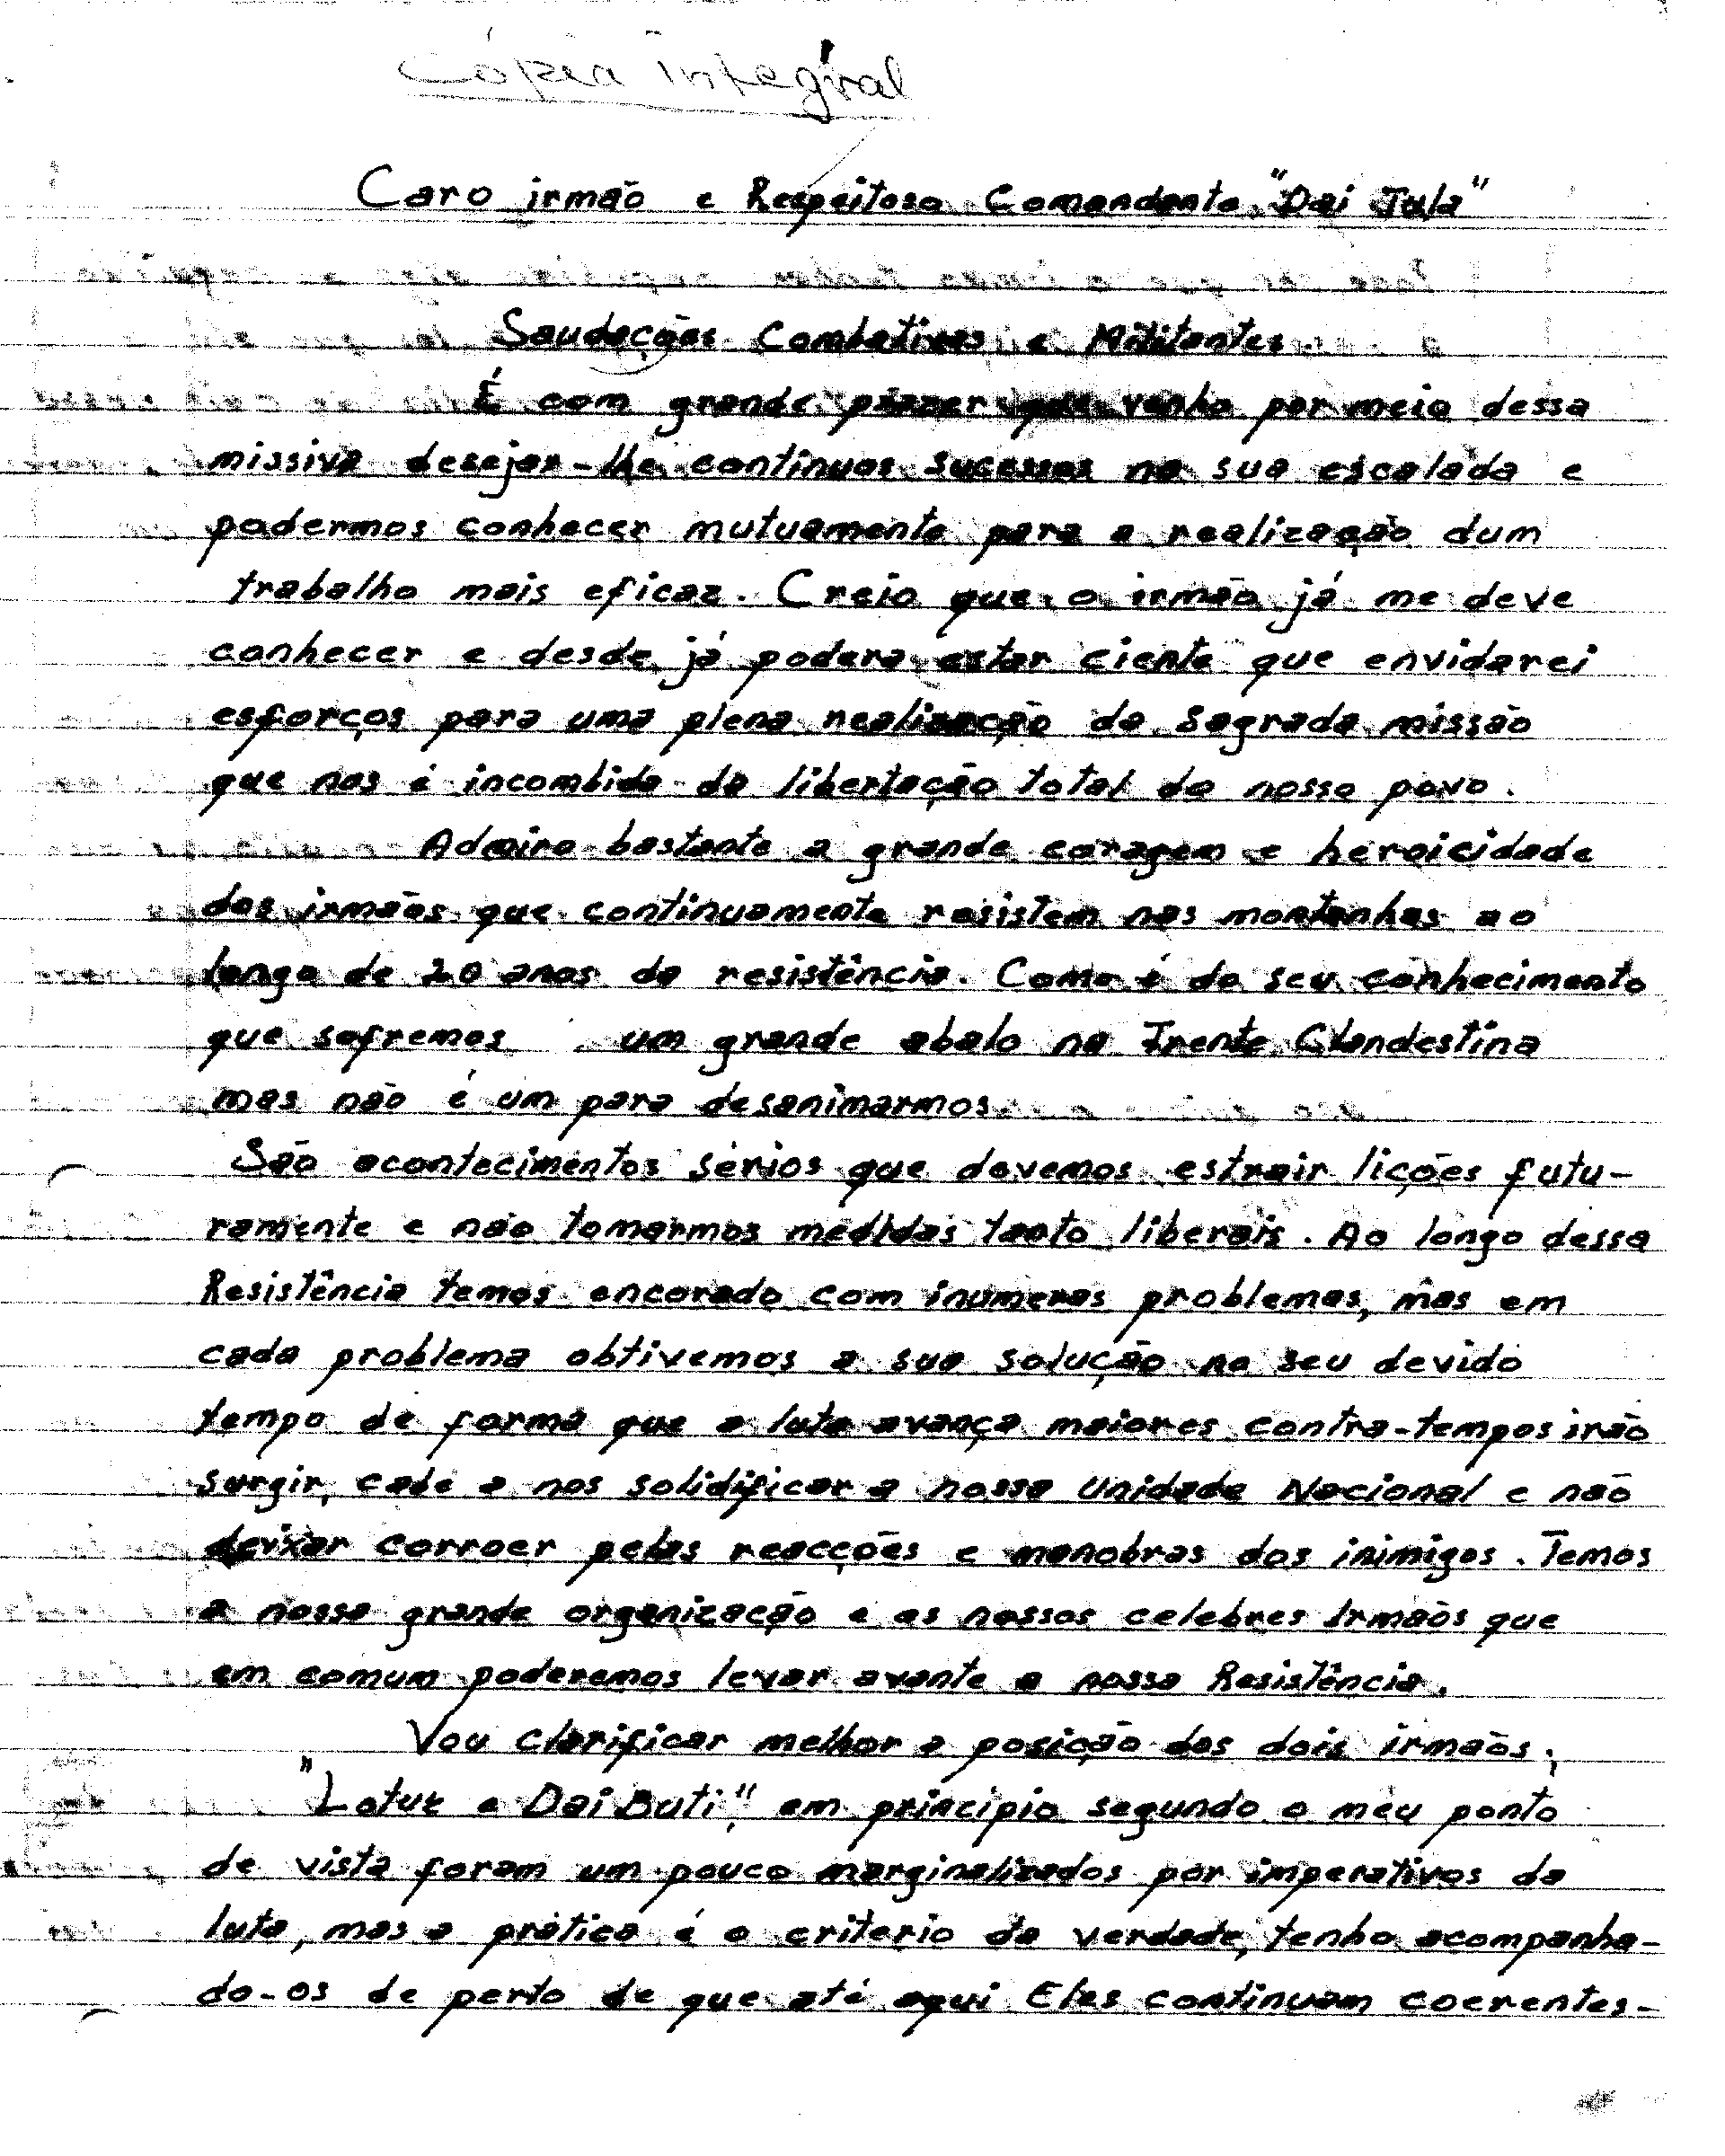 Cópia integral
Caro irmão e Respeitoso Comandante "Dai Tula"
Saudações Combativas e Militantes.
É com grande prazer que venho por meio dessa
missiva desejar-lhe continuos sucessos na sua escalada e
podermos conhecer mutuamente para a realização dum
trabalho mais eficaz. Creio que o irmão já me deve
conhecer e desde já podera estar ciente que envidarei
esforços para uma plena realização da Sagrada missão
que nos é incombida da libertação total do nosso povo.
Admiro bastante a grande coragem e heroicidade
dos irmãos que continuamente resistem nas montanhas ao
longo de 20 anos da resistência. Como é do seu conhecimento
que sofremos um grande abalo na Frente Clandestina
mas não é um para desanimarmos.
São acontecimentos sérios que devemos estrair lições futu-
ramente e não tomarmos medidas tanto liberais. Ao longo dessa
Resistência temos encarado com inumeras problemas, mas em
cada problema obtivemos a sua solução no seu devido
tempo de forma que a luta avança maiores contra-tempos irão
surgir, cabe a nos solidificar a nossa Unidade Nacional e não
deixar corroer pelas reacções e manobras dos inimigos. Temos
a nossa grande organização e os nossos celebres Irmãos que
em comum poderemos levar avante a nossa Resistência.
Vou clarificar melhor a posição dos dois irmãos,
"Lotuk e Dai Buti", em principio segundo o meu ponto
de vista foram um pouco marginalizados por imperativos da
luta, mas a prática é o criterio da verdade, tenho acompanha-
do-os de perto de que até aqui Eles continuam coerentes-